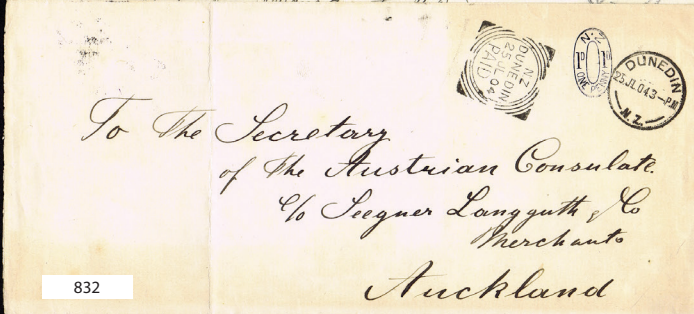 N.Z.
DUNEDIN
25 JL 04
PAID
N.Z.
1D 1D
ONE PENNY
DUNEDIN
25 JL 04 3-PM
N.Z.
To The Secretary
of The Austrian Consulate.
c/o Seegner Langguth & Co
Merchants
Auckland
832